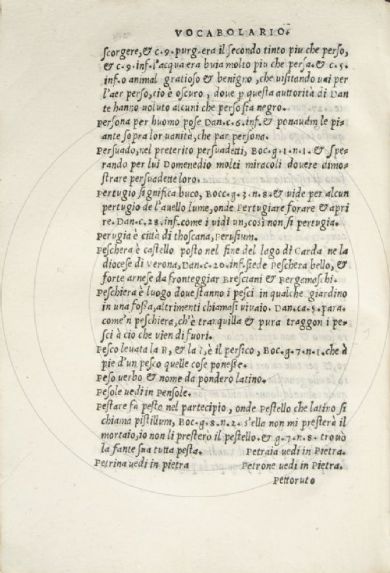 VOCABOLARIO.
scorgere, & c. 9. purg. era il secondo tinto piu che perso,
& c. 9. inf. l'acqua era buia molto piu che persa. & c. 5.
inf. o animal gratioso & benigno, che uisitando uai per
l'aer perso, cio è oscuro, doue p questa auttorità di Dan
te hanno uoluto alcuni che perso sia negro.
Persona per huomo pose Dan. c. 6. inf. & ponauam le pi=
ante sopra lor uanità, che par persona.
Persuado, nel preterito persuadetti, Boc. g. 1. n. 1. & spe
rando per lui Domenedio molti miracoli douere dimo=
strare persuadette loro.
Pertugio significa buco, Bocc. g. 3. n. 8. & uide per alcun
pertugio de l'auello lume, onde Pertugiare forare & apri
re. Dan. c. 28. inf. come i uidi un, cosi non si pertugia.
Perugia è città di thoscana, Perusium.
Peschera è castello posto nel fine del lago di Garda ne la
diocese di Verona, Dan. c. 20. inf. siede Peschera bello, &
forte arnese da fronteggiar Bresciani & Bergamoschi.
Peschiera è luogo doue stanno i pesci in qualche giardino
in una fossa, altrimenti chiamasi uiuaio. Dan. ca. 5. para.
come'n peschiera, ch'è tranquilla & pura traggon i pe=
sci à ciò che vien di fuori.
Pesco leuata la R, & la i, è il persico, Boc. g. 7. n. 1. che à
piè d'un pesco quelle cose ponesse.
Peso uerbo & nome da pondero latino.
Pesole uedi in Pensole.
Pestare fa pesto nel participio, onde Pestello che latino si
chiama pistillum, Boc. g. 8. n. 2. s'ella non mi presterà il
mortaio, io non li presterò il pestello. & g. 7. n. 8. trouò
la fante sua tutta pesta. Petraia uedi in Pietra.
Petrina uedi in pietra Petrone uedi in Pietra.
Pettoruto